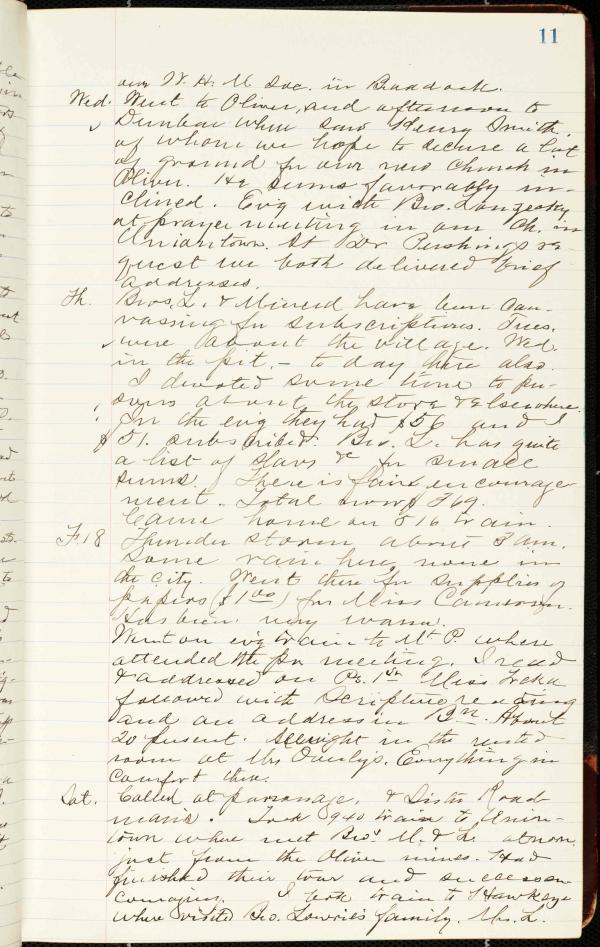 11
our W. H. M. Soc. in Braddock.
Wed. Went to Oliver, and afternoon to
Dunbar where saw Henry Smith,
of whom we hope to secure a lot
of ground for our new Church in
Oliver. He seems favorably in-
clined. Evg with Bro.
at prayer meeting in our Ch. in
Uniontown. At Dr re-
quest we both delivered brief
addresses.
Th. Bros. L. & have been can-
vassing for subscriptions. Tues.
were about the village. Wed.
in the pit, - to day there also.
I devoted some time to per-
sons about the store & elsewhere.
In the evg they had $56 and I
$51. subscribed. Bro. L. has quite
a list of Slavs &c for small
sums. There is fair encourage
ment. Total now $369.
Came home on 516 train.
F. 18 Thunder storm about 3 am.
Some rain here, none in
the city. Went there for supplies of
papers ($1 00) for Miss Cameron.
Has been very warm.
Went on evg train to Mt. P. where
attended the pr meeting. I read
& addressed on Ps. 1st Miss
followed with Scripture reading
and an address in About
20 present. All night in the rented
room at Mrs Everything in
comfort there.
Sat. Called at parsonage, & Sister Road
man's. Took 940 train to Union-
town where met Bros M. & L. at noon,
just from the Oliver mines. Had
finished their tour and
I took train to Hawkeye
where visited Bro. Lowries family. Mrs. L.